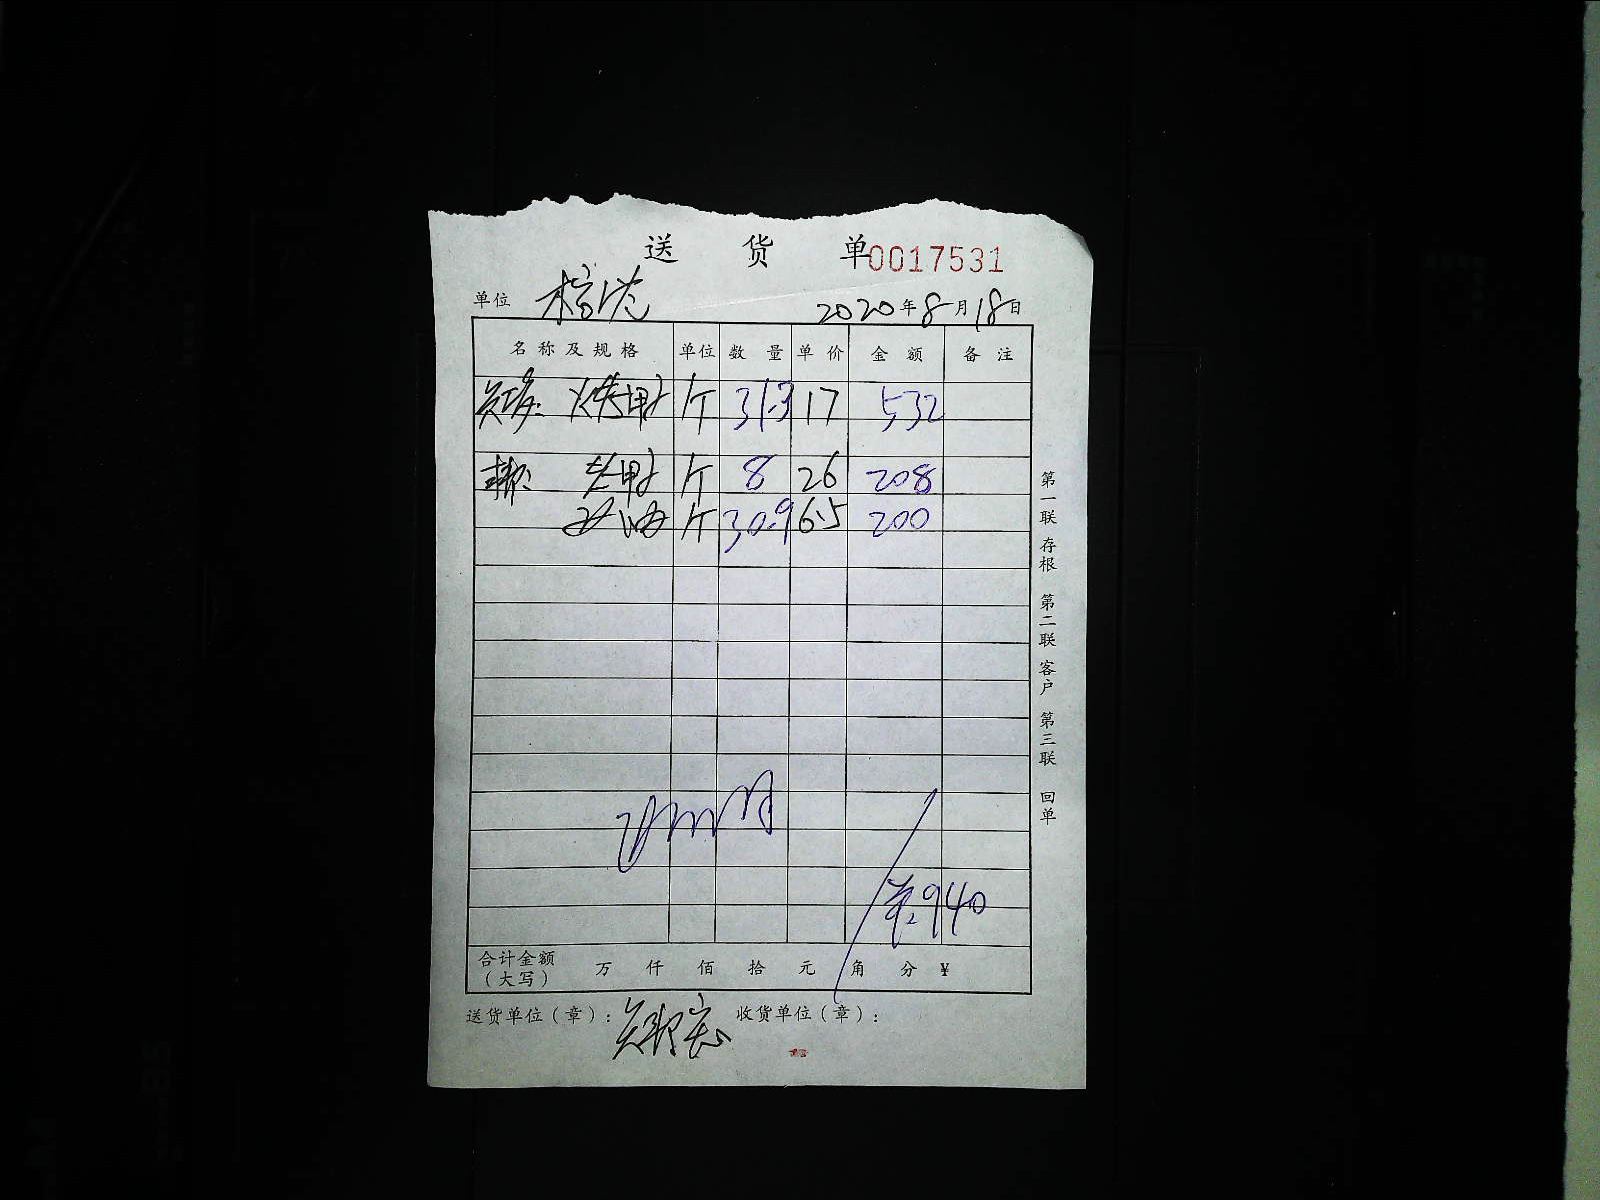 送 货 单 0017531
单位 2020年8月18日
名称及规格 单位 数量 单价 金额 备注
斤 31.3 17 532
斤 8 26 208
斤 30.9 6.5 200
940
合计金额(大写) 万 仟 佰 拾 元 角 分 ¥
送货单位(章): 收货单位(章):
第一联 存根 第二联 客户 第三联 回单